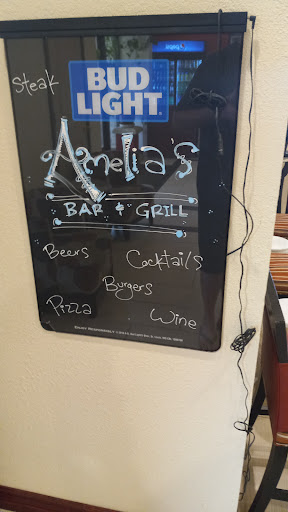 Steak
BUD
LIGHT
Amelia's
BAR & GRILL
Beers
Cocktails
Burgers
Pizza
Wine